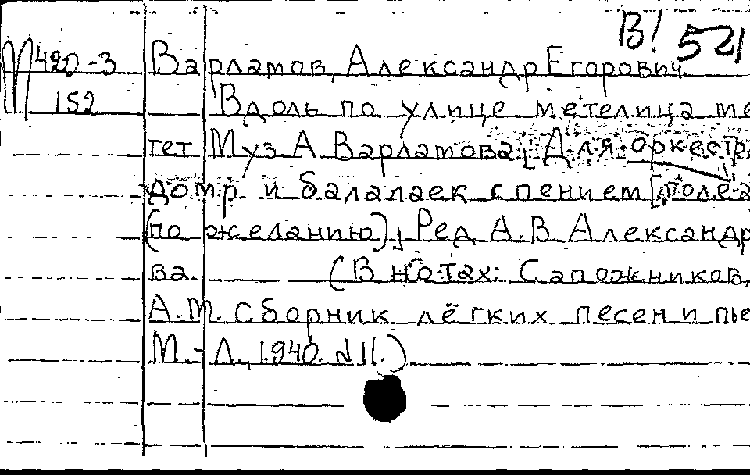 В! 521
М420-3 Варламов, Александр Егорович.
152 Вдоль по улице метелица ме
тет. Муз. А. Варламова. Для оркестр
домр и балалаек с пением
(по желанию). Ред. А.В. Александр
ва. (В нотах: Сапожников,
А.М. Сборник лёгких песен и пье
М.-Л., 1940. №11.)